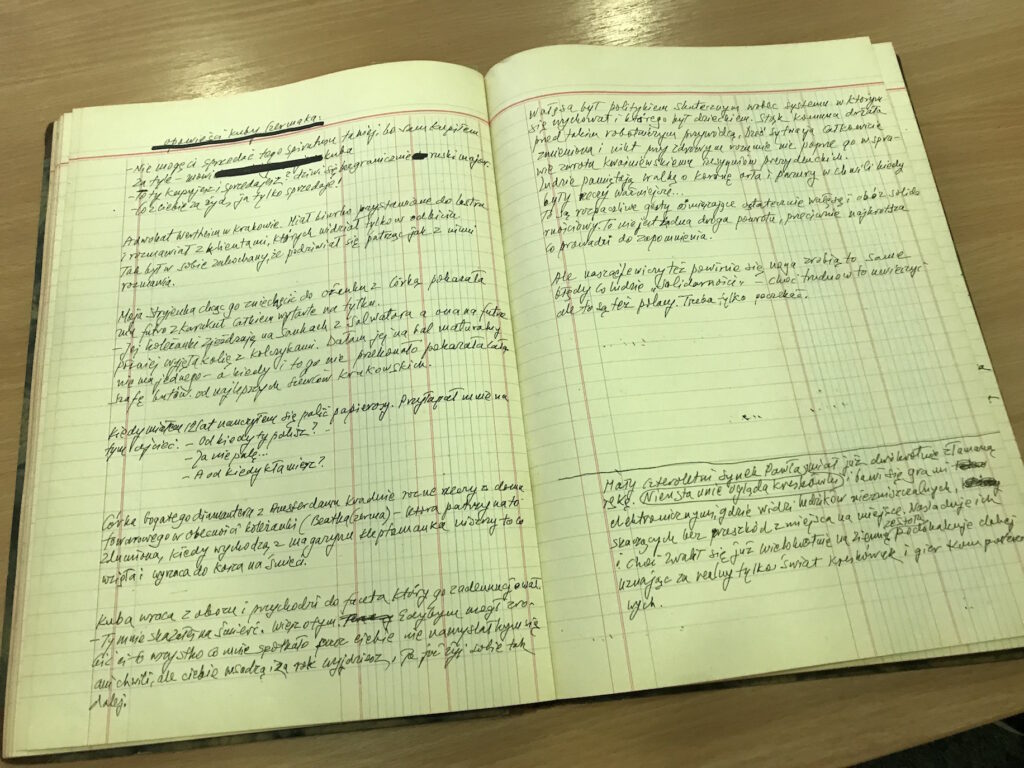 opowieści Kuby Germaka:
- Nie mogę ci sprzedać tego spirytusu taniej, bo sam kupiłem
za tyle - mówi Kuba
- To ty kupujesz i sprzedajesz? dziwi się bezgranicznie ruski major.
To z ciebie za żyd, ja tylko sprzedaję!
Adwokat Wertheim w Krakowie. Miał biurko przystawione do lustra
i rozmawiał z klientami, których widział tylko w odbiciu.
Tak był w sobie zakochany, że podziwiał się patrząc jak z nimi
rozmawia.
Moja stryjenka chcąc go zniechęcić do ożenku z córką pokazała
mu futro z karakuł całkiem wytarte na tyłku.
- Jej koleżanki zjeżdżają na sankach z Salwatora a ona na futrze
Później wyjęła kolię z kolczykami. Dałam jej na bal maturalny
nie ma jednego - a kiedy i to go nie przekonało pokazała całą
szafę butów od najlepszych szewców krakowskich.
Kiedy miałem 12 lat nauczyłem się palić papierosy. Przyłapał mnie na
tym ojciec: - Od kiedy ty palisz?
- Ja nie palę...
- A od kiedy kłamiesz?
Córka bogatego diamantera z Amsterdamu kradnie różne rzeczy z domu
towarowego w obecności koleżanki (Beatka) - która patrzy na to
zdumiona, kiedy wychodzą z magazynu kleptomanka wszystko co
wzięła wyrzuca do kosza na śmieci.
Kuba wraca z obozu i przychodzi do faceta który go zadenuncjował.
- Ty mnie skazałeś na śmierć. Wiesz o tym. Gdybym mógł zro-
bić ci to wszystko co mnie spotkało przez ciebie nie namyślałbym się
ani chwili, ale ciebie wsadzą i za rok wyjdziesz, to już żyj sobie tak
dalej.
Wałęsa był politykiem skutecznym wobec systemu w którym
się wychował i którego był dzieckiem. Stąd komuna drżała
przed takim robotniczym przywódcą. Dziś sytuacja całkowicie
zmieniona i nikt przy zdrowym rozumie nie poprze go w spra-
wie zwrotu Kwaśniewskiemu insygniów prezydenckich.
Ludzie pamiętają walkę o koronę orła i pazury w chwili kiedy
były rzeczy ważniejsze...
To są rozpaczliwe gesty ośmieszające ostatecznie Wałęsę i obóz solida-
rnościowy. To nie jest żadna droga powrotu, przeciwnie najkrótsza
co prowadzi do zapomnienia.
Ale nasza lewicy też powinie się noga zrobią to same
błędy co ludzie "Solidarności" - choć trudno w to uwierzyć
ale to są też polacy. Trzeba tylko poczekać.
Mały czteroletni synek Pawła miał już dwukrotnie złamaną
rękę. (Nieustannie ogląda kreskówki), bawi się grami
elektronicznymi, gdzie widzi ludzików niezniszczalnych,
skaczących bez przeszkód z miejsca na miejsce. Naśladuje ich
i choć zwalił się już wielokrotnie na ziemię ze stołu podskakuje dalej
uznając za realny tylko świat kreskówek i gier komputero-
wych.